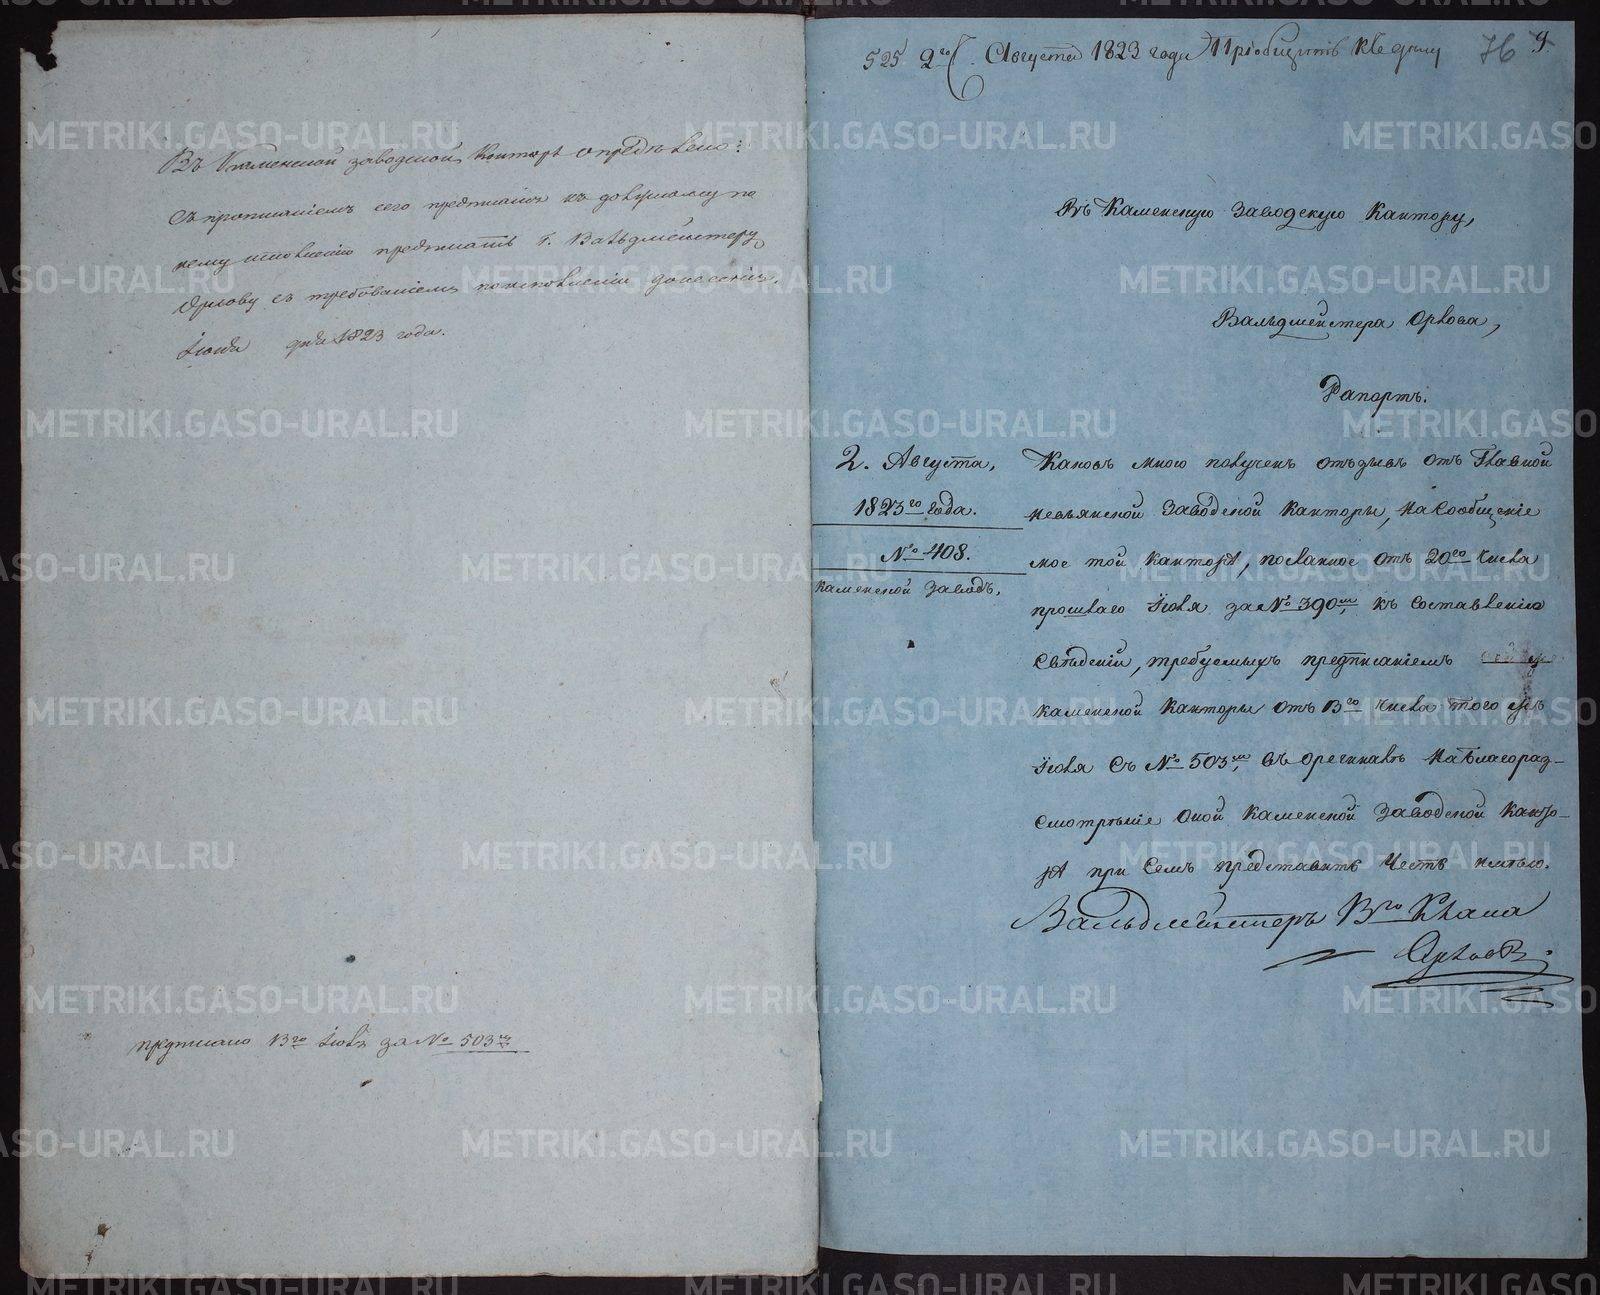 Въ Каменской заводской Конторѣ опредѣлено:
съ прописаніемъ сего предписанія къ должному по
нему исполненію предписать г. Вальдмейстеру
Орлову съ требованіемъ исполненіи донесенія.
Іюля дня 1823 года.
предписано 13го Іюля за № 503м
525. 2го Августа 1823 года Пріобщить къ делу
76 9
Въ Каменскую Заводскую Кантору,
Вальдмейстера Орлова,
Рапортъ.
2. Августа,
1823го года.
№ 408.
Каменской заводъ.
Каковъ мною полученъ отзывъ отъ Главной
Невьянской Заводской Канторы, на сообщеніе
мое той Канторѣ, посланное отъ 20го числа
прошлаго Іюля за № 390м, къ составленію
Сведеніи, требуемыхъ предписаніемъ
Каменской Канторы отъ 13го числа того жъ
Іюля съ № 503м, въ оречиналѣ на благораз-
смотрѣніе оной Каменской Заводской Канто-
рѣ при семъ представить честь имѣю.
Вальдмейстеръ 13го Класа
Орлов
METRIKI.GASO-URAL.RU